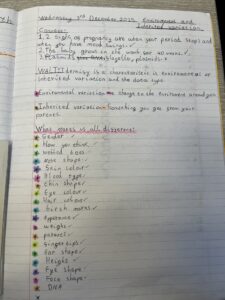 Wednesday 3rd December 2025 Environmental and
Inherited Variation.
Starter:
1. 2 signs of pregnancy are when your period stops and
when you have mood swings. ✓
2. The baby grows in the womb for 40 weeks. ✓
3. flagella, plasmids.
WALT: Identify if a characteristic is environmental or
inherited variation and the data type.
Environmental variation = change to the
Inherited variation = something you get from your
parents.
What makes us all different?
Gender ✓
How you think
Nose shape ✓
Skin colour ✓
Blood type ✓
Chin shape ✓
Eye colour ✓
Hair colour ✓
Birth marks ✓
Appearance ✓
weight ✓
parents ✓
Fingertips ✓
Ear shape ✓
Height ✓
Eye shape ✓
Face shape ✓
DNA